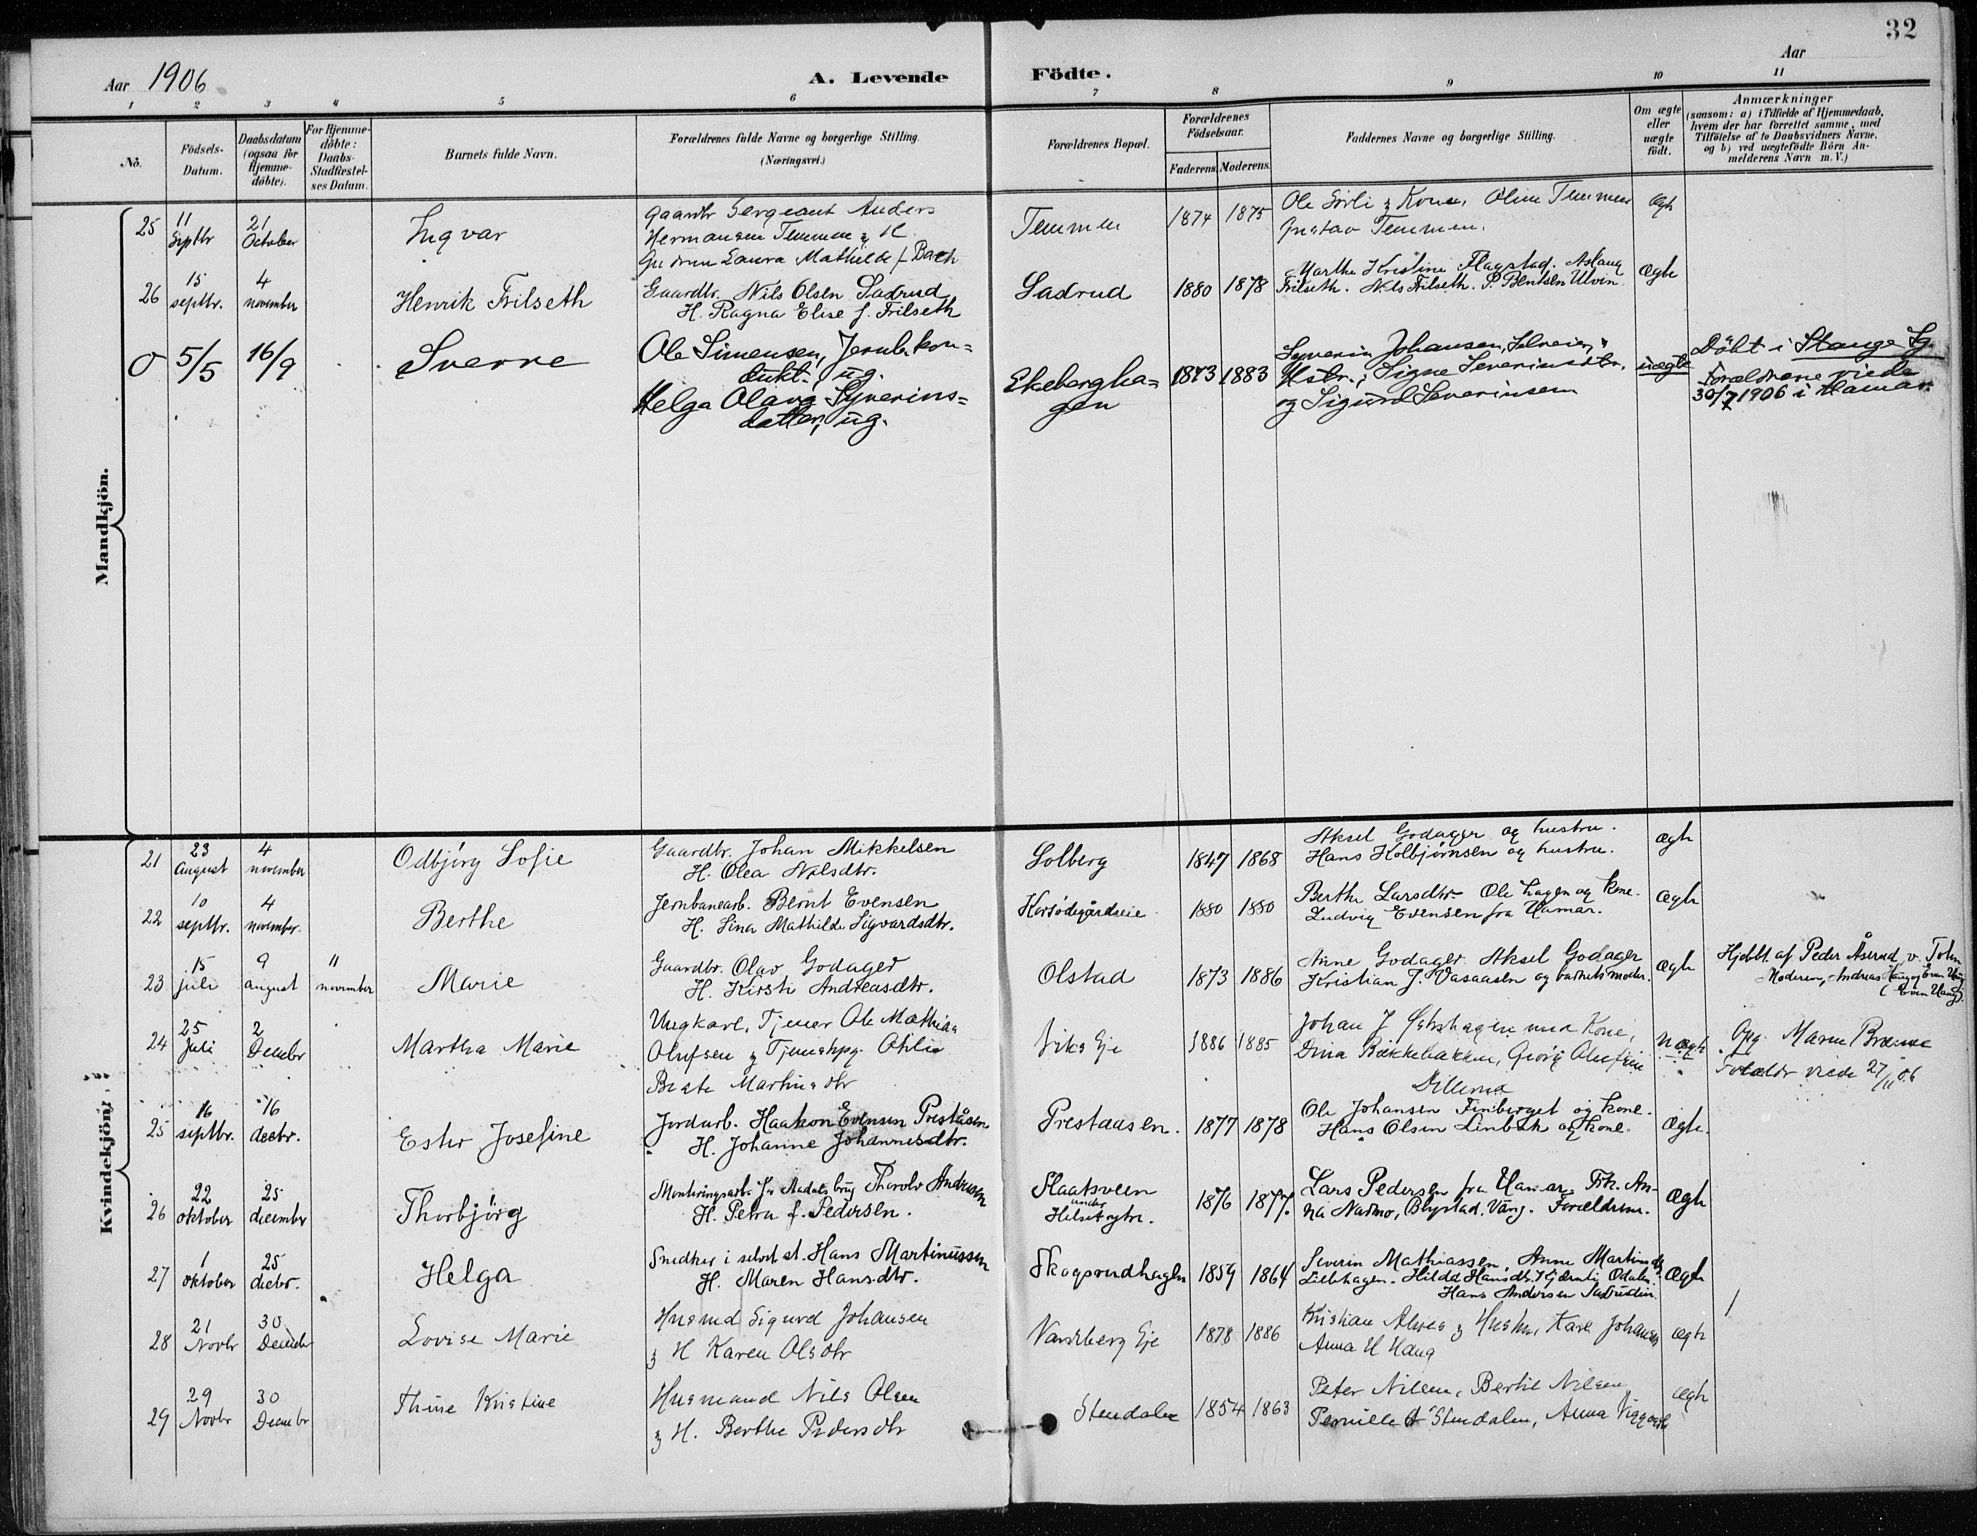 32
Aar 1906
A. Levende Födte.
Aar
1 2 3 4 5 6 7 8 9 10 11
No.
Födsels-Datum.
Daabsdatum (ogsaa for Hjemme-döbte).
For Hjemme-döbte: Daabs-Stadfæstel-ses Datum.
Barnets fulde Navn.
Forældrenes fulde Navne og borgerlige Stilling. (Næringsvei.)
Forældrenes Bopæl.
Forældrenes Födselsaar.
Faderens. Moderens.
Faddernes Navne og borgerlige Stilling.
Om ægte eller uægte födt.
Anmærkninger
(saasom: a) i Tilfælde af Hjemmedaab,
hvem der har forrettet samme, med
Tilföielse af to Daabsvidners Navne,
og b) ved uægtefödte Börn An-
melderens Navn m. V.)
Mandkjön.
25 11 Septbr 21 October Ingvar
Gaardbr Sergeant Anders
Hermansen Temmen & H.
Gudrun Laura Mathilde f. Bach
Temmen 1874 1875
Ole Sörli & Kone, Oline Temmen
Gustav Temmen.
Ægte
26 15 septbr. 4 november Henrik Frilseth
Gaardbr. Nils Olsen Sadrud
H. Ragna Elise f. Frilseth
Sadrud 1880 1878
Marthe Kristine Flagstad. Aslaug
Frilseth. Nils Frilseth. P. Bentsen Ulvin.
Ægte
0 5/5 16/9 Sverre
Ole Simensen, Jernb.kon=
dukt., ug.
Helga Olava Syverins=
datter, ug.
Ekebergha=
gen
1873 1883
Syverin Johansen, Selveier, &
Hstr., Signe Severinsdtr.
og Sigurd Severinsen
uægte
Döbt i Stange Sg.
Forældrene viede
30/7 1906 i Hamar.
Kvindekjön.
21 23 August 4 november Odbjörg Sofie
Gaardbr. Johan Mikkelsen
H. Olea Nilsdtr.
Solberg 1847 1868
Aksel Godager og hustru.
Hans Kolbjørnsen og hustru.
Ægte
22 10 septbr. 4 november. Berthe
Jernbanearb. Bernt Evensen
H. Lina Mathilde Sigvardsdtr.
Korsödegårdseie 1880 1880
Berthe Larsdtr. Ole Hagen og kone.
Ludvig Evensen fra Hamar.
Ægte
23 15 juli 9 august 11 november Marie
Gaardbr. Olav Godager
H. Kirsti Andreasdtr.
Olstad 1873 1886
Anne Godager. Aksel Godager
Kristian J. Vasaasen og barnets moder.
Ægte
Hjdbt. af Peder Åserud, v.
Moderen, Andreas Haug og Even Haug
(Even Haug).
24 25 Juli 2 Decmbr Martha Marie
Ungkarl, Tjener Ole Mathias
Olufsen & Tjenstepg. Otilie
Beate Martinsdtr
Viks Eje 1886 1885
Johan J. med Kone,
Dina Bækkebakken, Georg
Dillerud
Uægte
Opg. Maren
Forældr viede 27/11 06
25 16 septbr. 16 decbr. Ester Josefine
Jordarb. Haakon Evensen Preståsen
H. Johanne Johannesdtr.
Prestaasen. 1877 1878
Ole Johansen Finberget og kone.
Hans Olsen Linbæk og kone.
Ægte.
26 22 oktober 25 december Thorbjörg
Monteringsarb. fr Aadals brug Thorolv Andersen
H. Petra f. Pedersen.
Flaatsveen
under
1876 1877.
Lars Pedersen fra Hamar, Frk. An-
na Nadmo, Blystad, Vang. Forældrene.
Ægte
27 1 oktober 25 decbr. Helga
Snedker i selvst. st. Hans Martinussen
H. Maren Hansdtr.
Skogsrudhagen 1859 1864
Severin Mathiassen, Anne Martinsdtr
Lilehagen. Hilda Hansdtr. Odalen.
Hans Andersen
Ægte
28 21 Novbr 30 Decmbr Lovise Marie
Husmd Sigurd Johansen
& H Karen Olsdtr
Vardeberg Eje 1878 1886
Kristian & Hustru, Kare Johansen
Anna H Haug
Ægte
29 29 Novbr 30 Decmbr Thine Kristine
Husmand Nils Olsen
& H. Berthe Pedersdtr
Stendalen 1854 1863
Peter Nilsen, Bertil Nilsen
Pernille Stendalen, Anna
Ægte